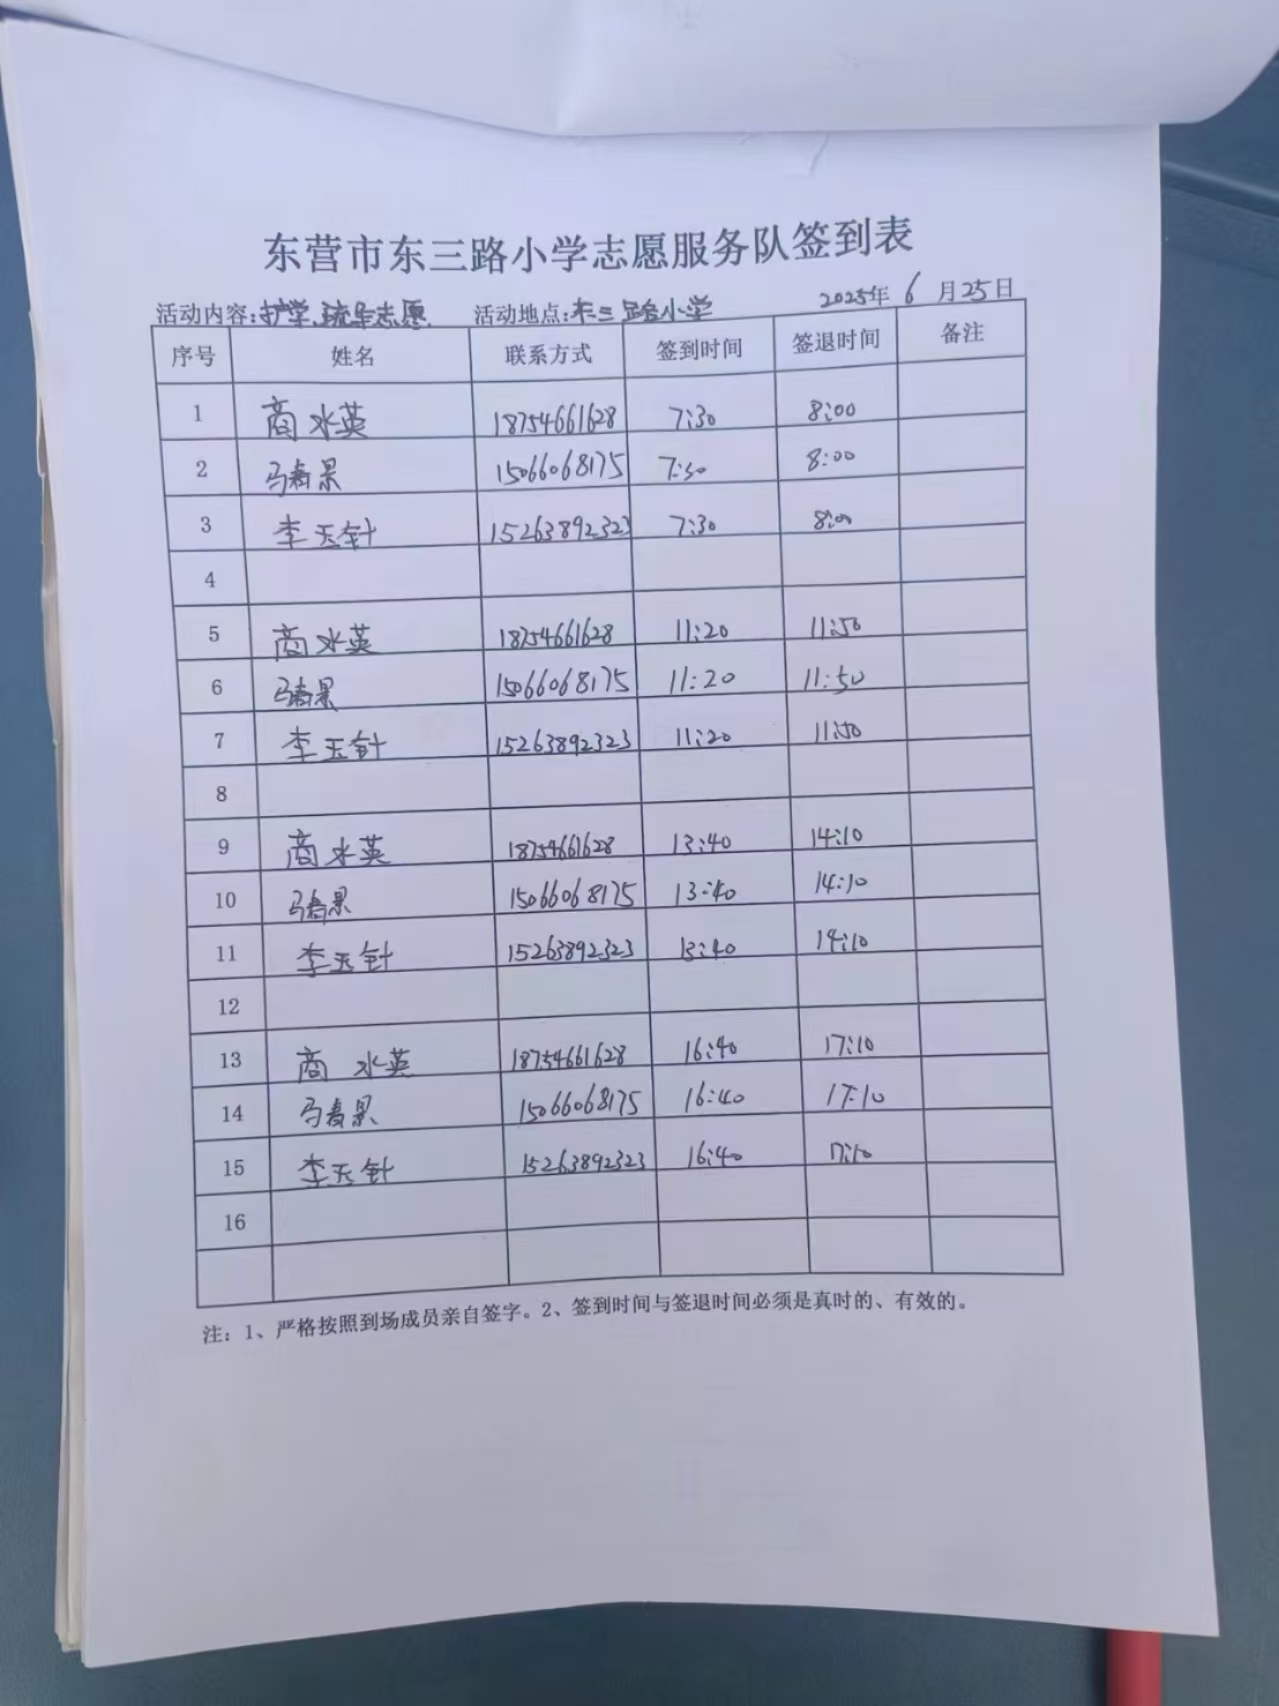 东营市东三路小学志愿服务队签到表
活动内容:护学、疏导志愿 活动地点:东三路小学 2025年 6 月 25 日
序号 姓名 联系方式 签到时间 签退时间 备注
1 商水英 18754661628 7:30 8:00
2 马春果 15066068175 7:30 8:00
3 李玉针 15263892323 7:30 8:00
4
5 商水英 18754661628 11:20 11:50
6 马春果 15066068175 11:20 11:50
7 李玉针 15263892323 11:20 11:50
8
9 商水英 18754661628 13:40 14:10
10 马春果 15066068175 13:40 14:10
11 李玉针 15263892323 13:40 14:10
12
13 商水英 18754661628 16:40 17:10
14 马春果 15066068175 16:40 17:10
15 李玉针 15263892323 16:40 17:10
16
注：1、严格按照到场成员亲自签字。2、签到时间与签退时间必须是真时的、有效的。